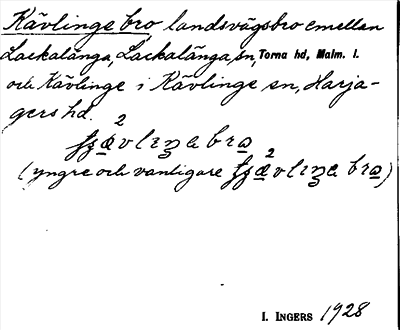 Kävlinge bro landsvägsbro emellan
Lackalänga, Lackalänga sn, Torna hd, Malm. l.
och Kävlinge i Kävlinge sn, Harja-
gers hd.
(yngre och vanligare
I. INGERS 1928